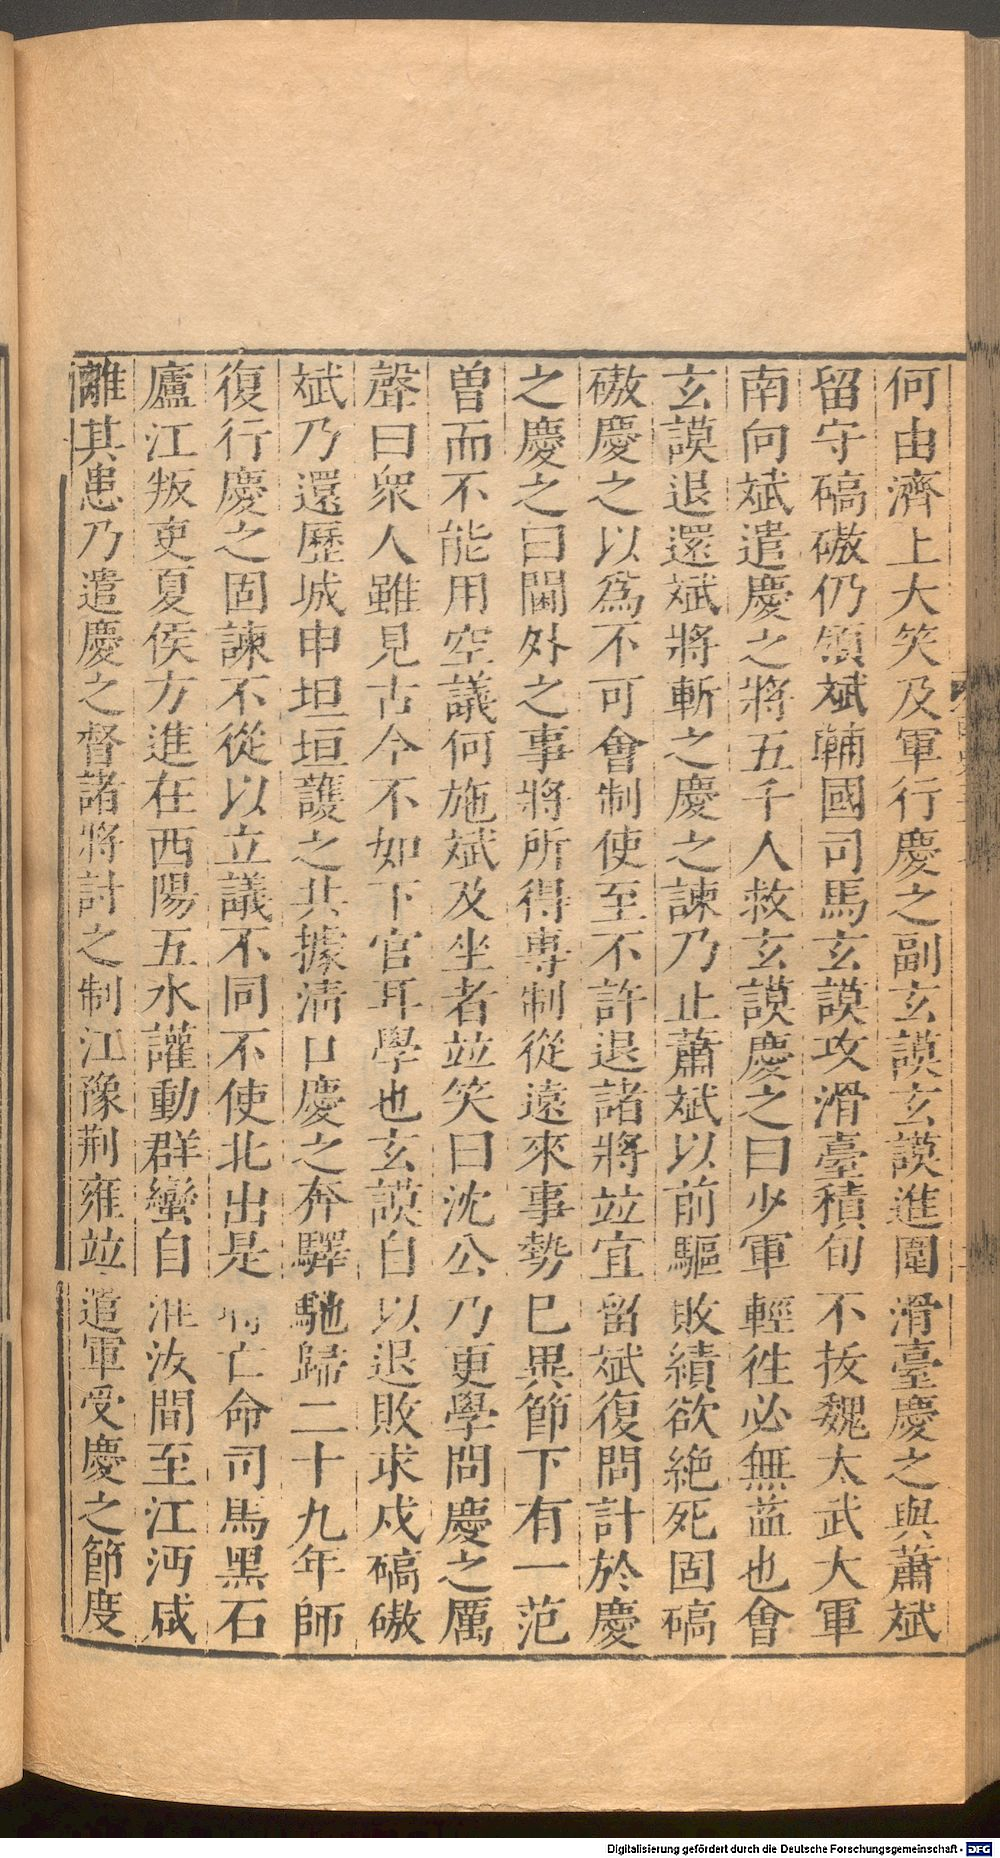 何由濟上大笑及軍行慶之副玄謨玄謨進圍滑臺慶之與蕭斌
留守碻磝仍領斌輔國司馬玄謨攻滑臺積旬不拔魏太武大軍
南向斌遣慶之將五千人救玄謨慶之曰少軍輕徃必無益也會
玄謨退還斌將斬之慶之諫乃止蕭斌以前驅敗績欲絶死固碻
磝慶之以爲不可會制使至不許退諸將竝宜留斌復問計於慶
之慶之曰閫外之事將所得專制從遠來事勢已異節下有一范
曽而不能用空議何施斌及坐者竝笑曰沈公乃更學問慶之厲
聲曰衆人雖見古今不如下官耳學也玄謨自以退敗求戍碻磝
斌乃還歷城申坦垣護之共據淸口慶之奔驛馳歸二十九年師
復行慶之固諫不從以立議不同不使北出是時亡命司馬黑石
廬江叛吏夏侯方進在西陽五水讙動群蠻自淮汝間至江沔咸
離其患乃遣慶之督諸將討之制江豫荆雍竝遣軍受慶之節度
Digitalisierung gefördert durch die Deutsche Forschungsgemeinschaft - DFG